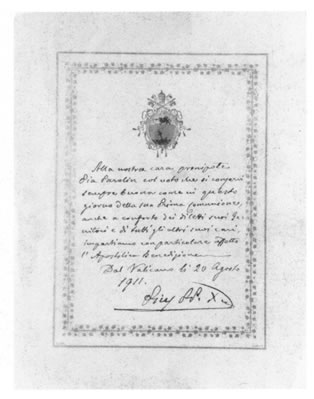 Alla nostra cara pronipote
Pia Parolin col voto che si conservi
sempre buona come in questo
giorno della sua Prima Comunione,
anche a conforto dei diletti suoi Ge-
nitori e di tutti gli altri suoi cari
impartiamo con particolare affetto
l'Apostolica Benedizione.
Dal Vaticano li 20 Agosto
1911.
Pius PP. X